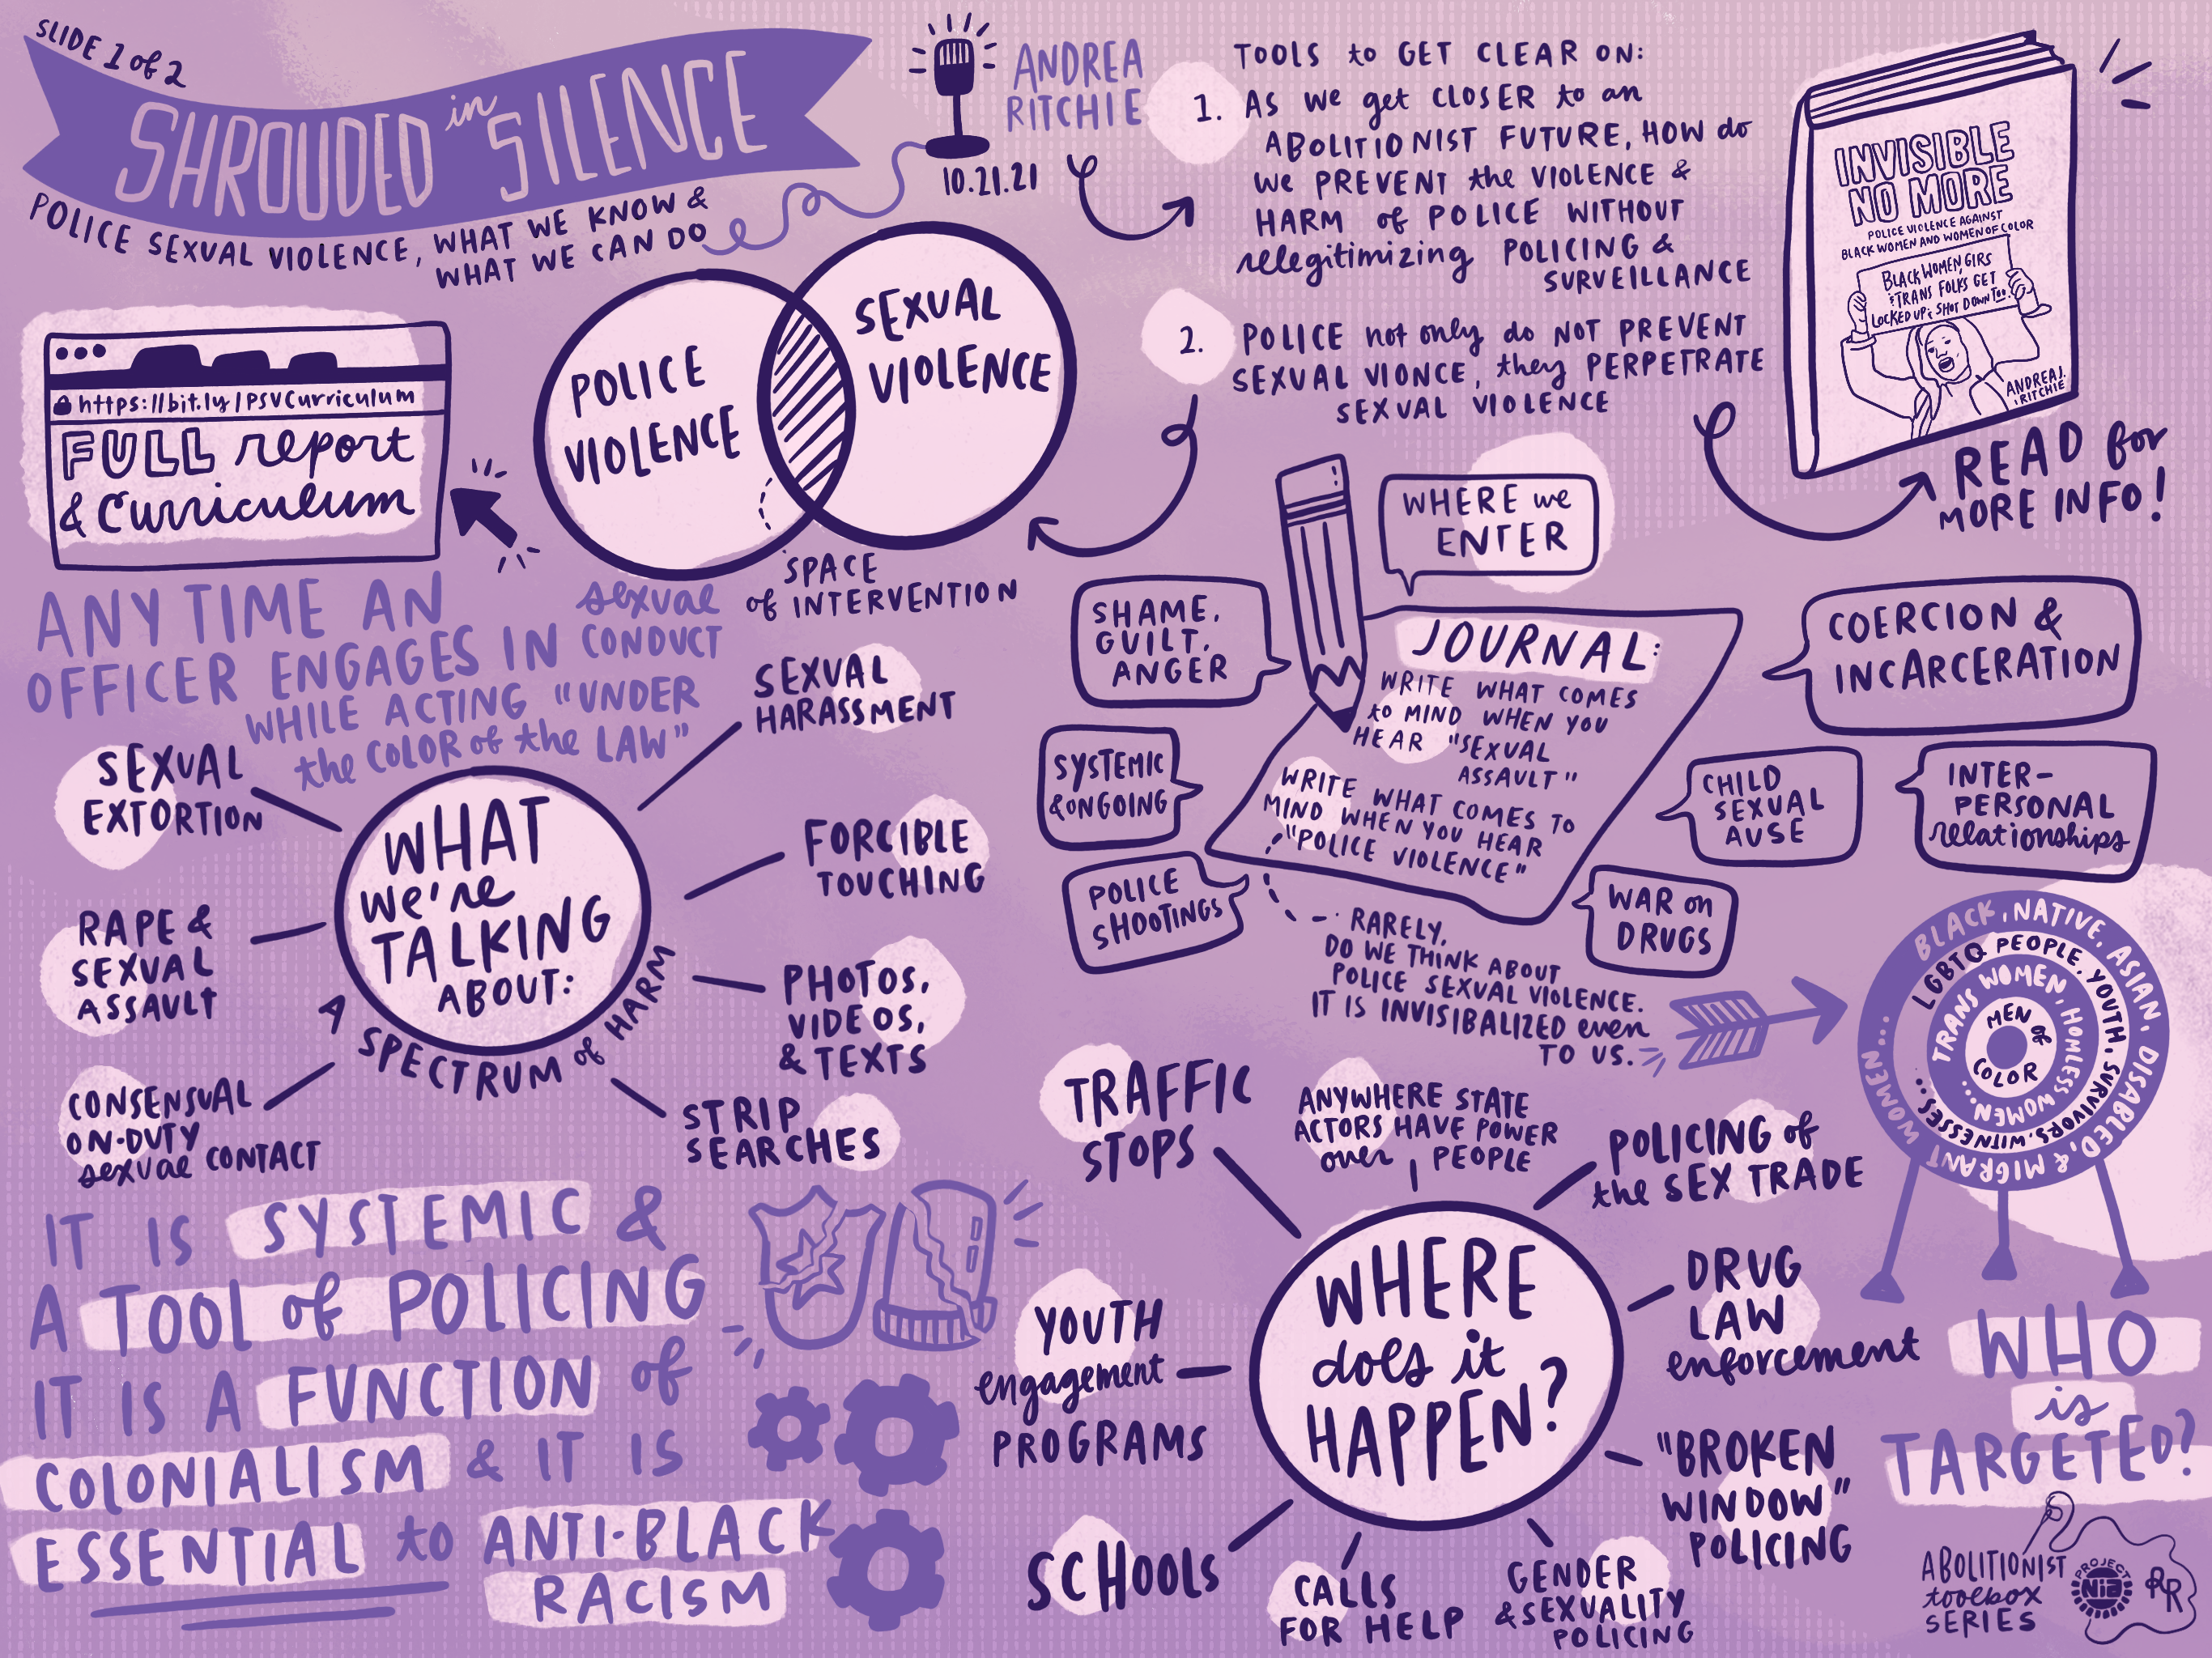 SLIDE 1 of 2
SHROUDED in SILENCE
POLICE SEXUAL VIOLENCE, WHAT WE KNOW &
WHAT WE CAN DO
ANDREA
RITCHIE
10.21.21
TOOLS to GET CLEAR ON:
1. AS we get CLOSER to an
ABOLITIONIST FUTURE, HOW do
we PREVENT the VIOLENCE &
HARM of POLICE WITHOUT
relegitimizing POLICING &
SURVEILLANCE
2. POLICE not only do NOT PREVENT
SEXUAL VIONCE, they PERPETRATE
SEXUAL VIOLENCE
INVISIBLE
NO MORE
POLICE VIOLENCE AGAINST
BLACK WOMEN AND WOMEN OF COLOR
BLACK WOMEN, GIRS
& TRANS FOLKS GET
LOCKED UP & SHOT DOWN TOO!
ANDREA J.
RITCHIE
READ for
MORE INFO!
https://bit.ly/PSVCurriculum
FULL report
& Curriculum
POLICE
VIOLENCE
SEXUAL
VIOLENCE
SPACE
of INTERVENTION
ANY TIME AN
OFFICER ENGAGES IN sexual
CONDUCT
WHILE ACTING "UNDER
the COLOR of the LAW"
WHAT
we're
TALKING
ABOUT:
A SPECTRUM of HARM
SEXUAL
HARASSMENT
FORCIBLE
TOUCHING
PHOTOS,
VIDEOS,
& TEXTS
STRIP
SEARCHES
SEXUAL
EXTORTION
RAPE &
SEXUAL
ASSAULT
CONSENSUAL
ON-DUTY
sexual CONTACT
WHERE we
ENTER
SHAME,
GUILT,
ANGER
SYSTEMIC
& ONGOING
POLICE
SHOOTINGS
JOURNAL:
WRITE WHAT COMES
to MIND WHEN YOU
HEAR "SEXUAL
ASSAULT"
WRITE WHAT COMES TO
MIND WHEN YOU HEAR
"POLICE VIOLENCE"
COERCION &
INCARCERATION
CHILD
SEXUAL
AUSE
INTER-
PERSONAL
relationships
WAR on
DRUGS
RARELY,
DO WE THINK ABOUT
POLICE SEXUAL VIOLENCE.
IT IS INVISIBALIZED even
TO US.
BLACK, NATIVE, ASIAN, DISABLED, & MIGRANT WOMEN WOMEN...
LGBTQ PEOPLE, YOUTH, SURVIVORS, WITNESSES...
TRANS WOMEN, HOMLESS WOMEN...
MEN OF COLOR
WHO
is
TARGETED?
IT IS SYSTEMIC &
A TOOL of POLICING
IT IS A FUNCTION of
COLONIALISM & IT IS
ESSENTIAL to ANTI-BLACK
RACISM
WHERE
does it
HAPPEN?
TRAFFIC
STOPS
ANYWHERE STATE
ACTORS HAVE POWER
over PEOPLE
POLICING of
the SEX TRADE
DRUG
LAW
enforcement
"BROKEN
WINDOW"
POLICING
GENDER
& SEXUALITY
POLICING
CALLS
FOR HELP
SCHOOLS
YOUTH
engagement
PROGRAMS
ABOLITIONIST
toolbox
SERIES
PROJECT
NIA
RR